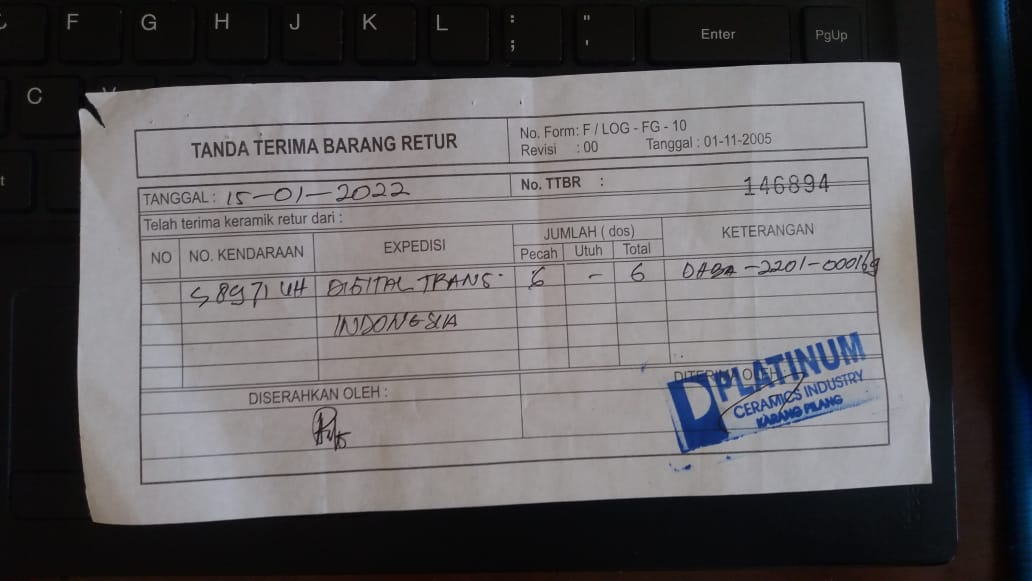 F G H J K L : ; " ' Enter PgUp
C
TANDA TERIMA BARANG RETUR
No. Form: F / LOG - FG - 10
Revisi : 00 Tanggal : 01-11-2005
TANGGAL : 15-01-2022
No. TTBR : 146894
Telah terima keramik retur dari :
NO NO. KENDARAAN EXPEDISI JUMLAH ( dos) KETERANGAN
Pecah Utuh Total
S 8971 UH DIGITAL TRANS- 6 - 6
INDONESIA
DISERAHKAN OLEH : DITERIMA OLEH
PLATINUM
CERAMICS INDUSTRY
KARANG PILANG